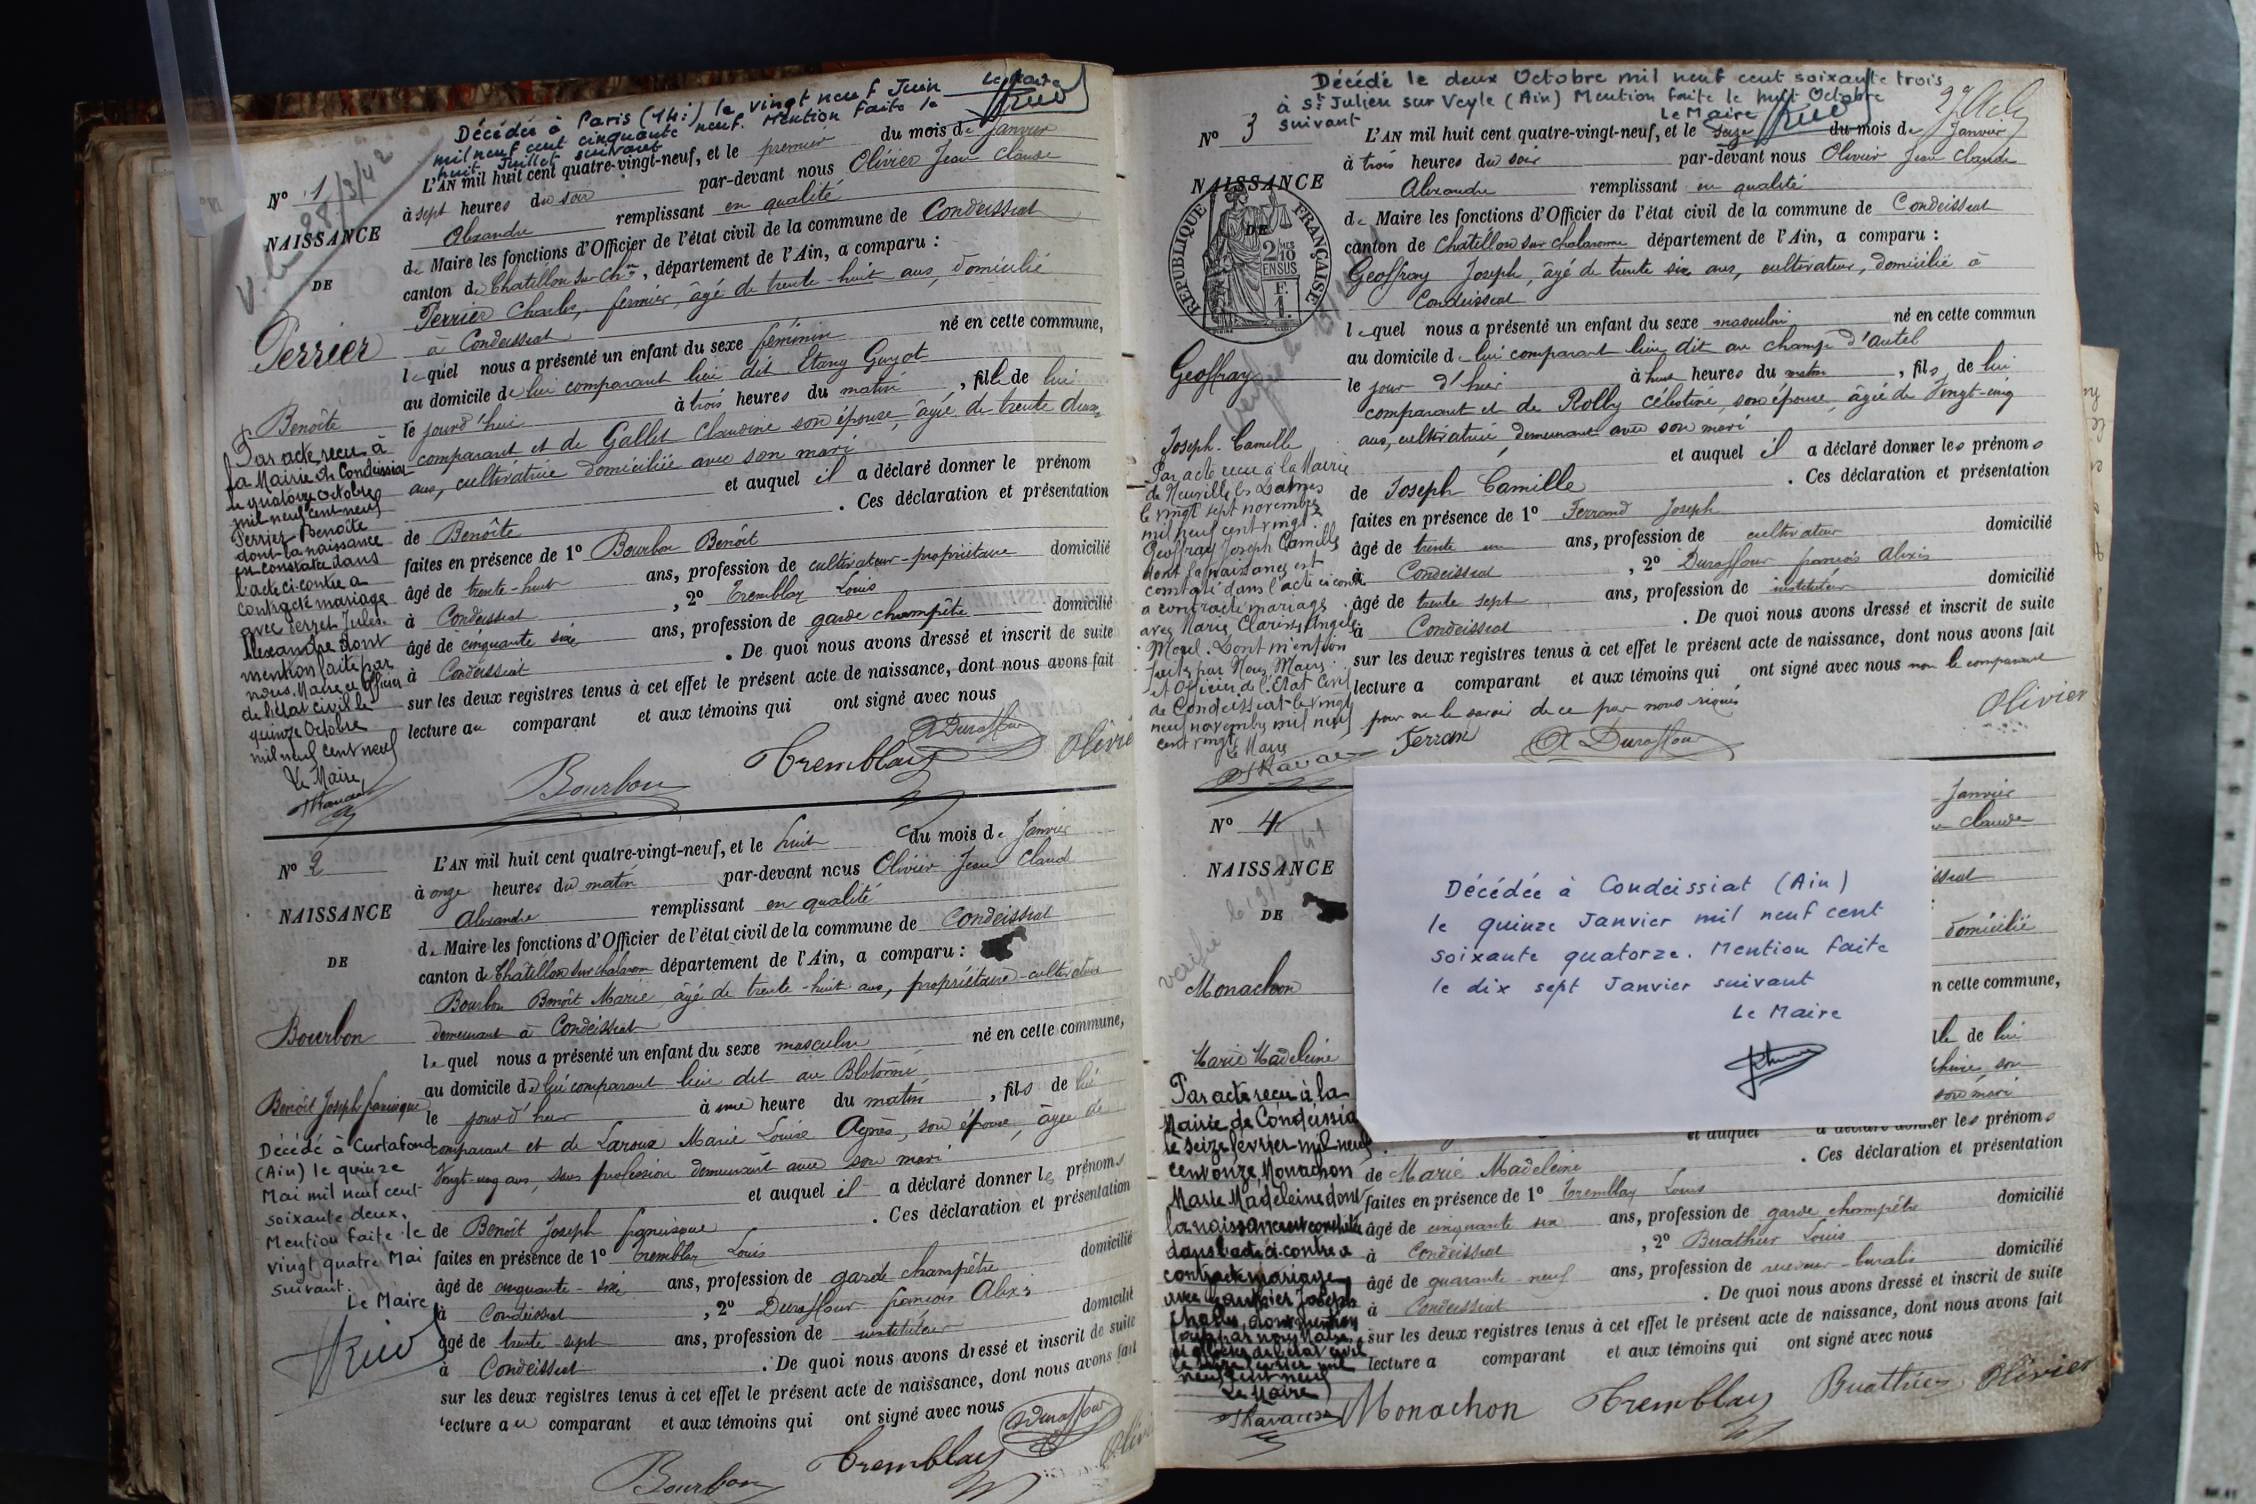 Décédée à Paris (14è) le vingt neuf Juin
mil neuf cent cinquante neuf. Mention faite le
huit Juillet suivant
Le Maire
Nº 1
28/3/42
NAISSANCE
DE
Perrier
Benoîte
L'AN mil huit cent quatre-vingt-neuf, et le premier du mois de Janvier
à sept heures du soir par-devant nous Olivier Jean Claude
Alexandre remplissant en qualité
de Maire les fonctions d'Officier de l'état civil de la commune de Condeissiat
canton de Chatillon sur Chne, département de l'Ain, a comparu :
Perrier Charles, fermier, âgé de trente-huit ans, domicilié
à Condeissiat
lequel nous a présenté un enfant du sexe féminin né en cette commune,
au domicile de lui comparant lieu dit Etang Guyot
le jourd'hui à trois heures du matin, fille de lui
comparant et de Gallet Claudine son épouse, âgée de trente deux
ans, cultivatrice domiciliée avec son mari
et auquel il a déclaré donner le prénom
de Benoîte . Ces déclaration et présentation
faites en présence de 1º Bourbon Benoît
âgé de trente-huit ans, profession de cultivateur-propriétaire domicilié
à Condeissiat , 2º Tremblay Louis
âgé de cinquante six ans, profession de garde champêtre domicilié
à Condeissiat . De quoi nous avons dressé et inscrit de suite
sur les deux registres tenus à cet effet le présent acte de naissance, dont nous avons fait
lecture au comparant et aux témoins qui ont signé avec nous
Par acte reçu à
la Mairie de Condeissiat
le quatorze Octobre
mil neuf cent neuf
Perrier Benoîte
dont la naissance
est constatée dans
l'acte ci-contre a
contracté mariage
avec Perret Jules
Alexandre dont
mention faite par
nous Maire et Officier
de l'état civil le
quinze Octobre
mil neuf cent neuf
Le Maire
Bourbon Tremblay Duraffour Olivier
Nº 2
NAISSANCE
DE
Bourbon
Benoît Joseph françisque
L'AN mil huit cent quatre-vingt-neuf, et le huit du mois de Janvier
à onze heures du matin par-devant nous Olivier Jean Claude
Alexandre remplissant en qualité
de Maire les fonctions d'Officier de l'état civil de la commune de Condeissiat
canton de Châtillon sur Chalaronne département de l'Ain, a comparu :
Bourbon Benoît Marie âgé de trente-huit ans, propriétaire-cultivateur
demeurant à Condeissiat
lequel nous a présenté un enfant du sexe masculin né en cette commune,
au domicile de lui comparant lieu dit au
le jourd'hui à une heure du matin, fils de lui
comparant et de Marie Louise Agnès, son épouse, âgée de
Vingt-cinq ans, sans profession demeurant avec son mari
et auquel il a déclaré donner les prénoms
de Benoît Joseph françisque . Ces déclaration et présentation
faites en présence de 1º Tremblay Louis
âgé de cinquante-six ans, profession de garde champêtre domicilié
à Condeissiat , 2º Duraffour françois Alexis
âgé de trente-sept ans, profession de instituteur domicilié
à Condeissiat . De quoi nous avons dressé et inscrit de suite
sur les deux registres tenus à cet effet le présent acte de naissance, dont nous avons fait
lecture au comparant et aux témoins qui ont signé avec nous
Décédé à Curtafond
(Ain) le quinze
Mai mil neuf cent
soixante deux.
Mention faite le
vingt quatre Mai
suivant.
Le Maire
Bourbon Tremblay Duraffour
Décédé le deux Octobre mil neuf cent soixante trois
à St Julien sur Veyle (Ain) Mention faite le huit Octobre
suivant Le Maire
Nº 3
NAISSANCE
DE
REPUBLIQUE FRANÇAISE
2/10
EN SUS
F.
1.
Geoffray
Joseph-Camille
L'AN mil huit cent quatre-vingt-neuf, et le seize du mois de Janvier
à trois heures du soir par-devant nous Olivier Jean Claude
Alexandre remplissant en qualité
de Maire les fonctions d'Officier de l'état civil de la commune de Condeissiat
canton de Châtillon sur Chalaronne département de l'Ain, a comparu :
Geoffray Joseph, âgé de trente six ans, cultivateur, domicilié à
Condeissiat
lequel nous a présenté un enfant du sexe masculin né en cette commun
au domicile de lui comparant lieu dit au champ d'autel
le jour d'hier à huit heures du matin, fils de lui
comparant et de Rolly Célestine, son épouse, âgée de Vingt-cinq
ans, cultivatrice, demeurant avec son mari
et auquel il a déclaré donner les prénoms
de Joseph Camille . Ces déclaration et présentation
faites en présence de 1º Ferrand Joseph
âgé de trente un ans, profession de cultivateur domicilié
à Condeissiat , 2º Duraffour françois Alexis
âgé de trente sept ans, profession de instituteur domicilié
à Condeissiat . De quoi nous avons dressé et inscrit de suite
sur les deux registres tenus à cet effet le présent acte de naissance, dont nous avons fait
lecture a comparant et aux témoins qui ont signé avec nous non le comparant
pour ne le savoir de ce par nous requis
Par acte reçu à la Mairie
de Neuville les Dames
le vingt sept novembre
mil neuf cent vingt
Geoffray Joseph Camille
dont la naissance est
constaté dans l'acte ci contre
a contracté mariage
avec Marie Clarisse Angèle
Morel. Dont mention
faite par Nous, Maire
et Officier de l'Etat Civil
de Condeissiat le vingt
neuf novembre mil neuf
cent vingt
Le Maire
Ferran Duraffour Olivier
Nº 4
NAISSANCE
DE
Monachon
Marie Madeleine
Décédée à Condeissiat (Ain)
le quinze Janvier mil neuf cent
soixante quatorze. Mention faite
le dix sept Janvier suivant
Le Maire
Janvier
Claude
domicilié
n cette commune,
lle de lui
son
son mari
et auquel a déclaré donner les prénoms
de Marie Madeleine . Ces déclaration et présentation
faites en présence de 1º Tremblay Louis
âgé de cinquante six ans, profession de garde champêtre domicilié
à Condeissiat , 2º Buathier Louis
âgé de quarante-neuf ans, profession de receveur-buraliste domicilié
à Condeissiat . De quoi nous avons dressé et inscrit de suite
sur les deux registres tenus à cet effet le présent acte de naissance, dont nous avons fait
lecture a comparant et aux témoins qui ont signé avec nous
Par acte reçu à la
Mairie de Condeissia
le seize février mil neuf
cent onze, Monachon
Marie Madeleine dont
la naissance est constatée
dans l'acte ci-contre a
contracté mariage
avec Gauthier Joseph
Charles, dont mention
faite par nous Maire
et officier de l'état civil
le seize février mil
neuf cent
Le Maire
Monachon Tremblay Buathier Olivier